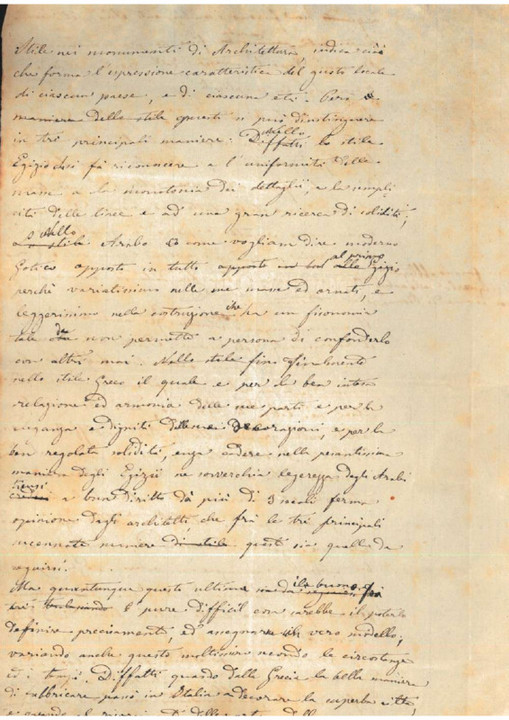 Stile nei monumenti di Architettura indica ciò
che forma l'espressione caratteristica del gusto locale
di ciascun paese, e di ciascuna età. Però
maniere dello stile operati si può distinguere
in tré principali maniere. Nello Diffatti lo stile
Egizio che fà riconoscere l'uniformità delle
masse a la monotonia dei dettaglii, e la sempli
cità delle linee e ad una gran ricerca di solidità,
Nello stile Arabo come vogliam dire moderno
Gotico opposto in tutto al primo alla Egizio
perchè variatissimo nelle sue masse ed ornati, e
leggerissimo nella costruzione che ha un fisonomia
tale da non permette a persona di confonderlo
con altri mai. Nello stile fino finalmente
nello stile Greco il quale e per la ben intesa
relazione ed armonia delle sue parti e per la
eleganza e dignità delle sue decorazioni, e per la
ben regolata solidità, senza cadere nella pesantissima
maniera degli Egizii ne soverchia legerezza degli Arabi
tiensi a buon diritto da più di 3 secoli ferma
opinione dagli architetti che frà le tré principali
accennate maniere di stile questi sia quella da
seguirsi.
Ma quantunque questo ultima sia da seguirsi
è pure difficil cosa sarebbe il poterlo
definire precisamente, ed assegnare un vero modello,
variando anche questo moltissimo secondo le circostanze
ed i tempi. Diffatti quando dalla Grecia la bella maniera
di fabbricare passò in Italia a decorare la superba città,